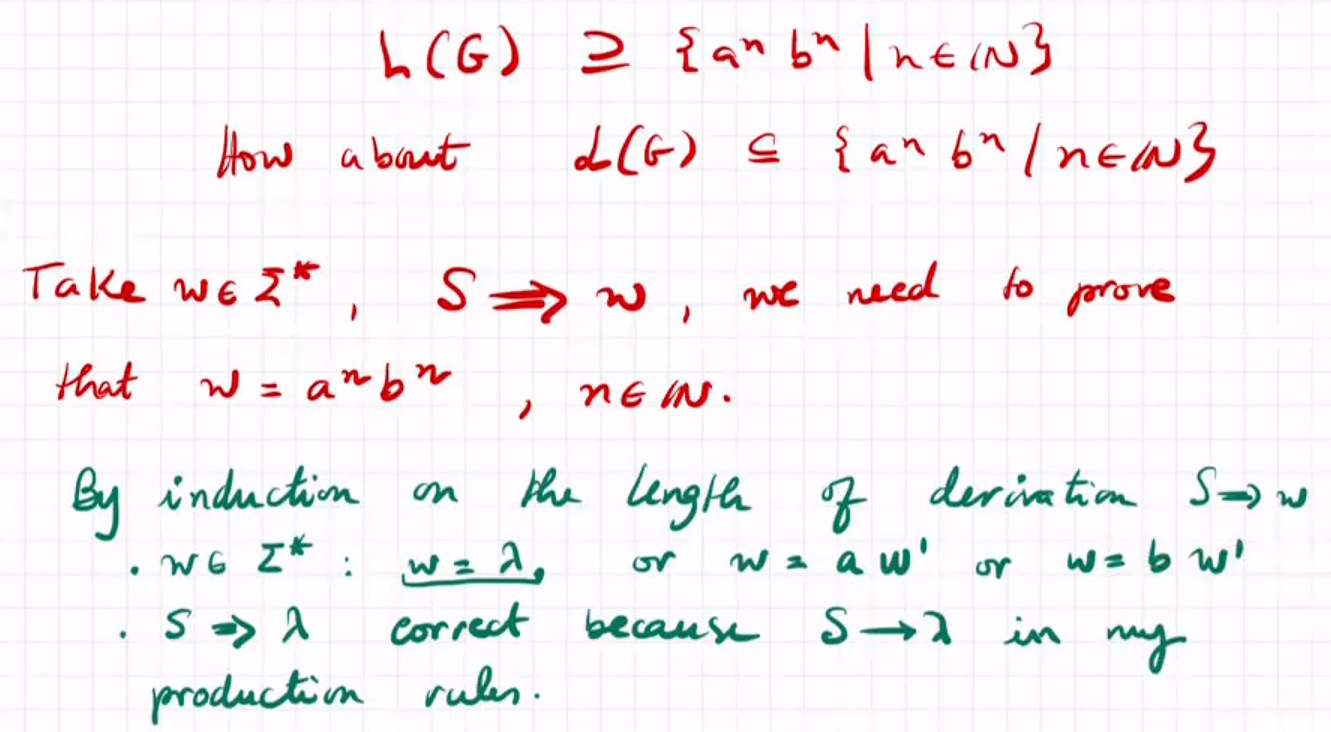 L(G) ⊇ {aⁿ bⁿ | n ∈ ℕ}
How about L(G) ⊆ {aⁿ bⁿ / n ∈ ℕ}
Take w ∈ Σ*, S ⟹ w, we need to prove
that w = aⁿ bⁿ, n ∈ ℕ.
By induction on the length of derivation S ⟹ w
. w ∈ Σ* : w = λ, or w = a w' or w = b w'
. S ⟹ λ correct because S → λ in my
production rules.